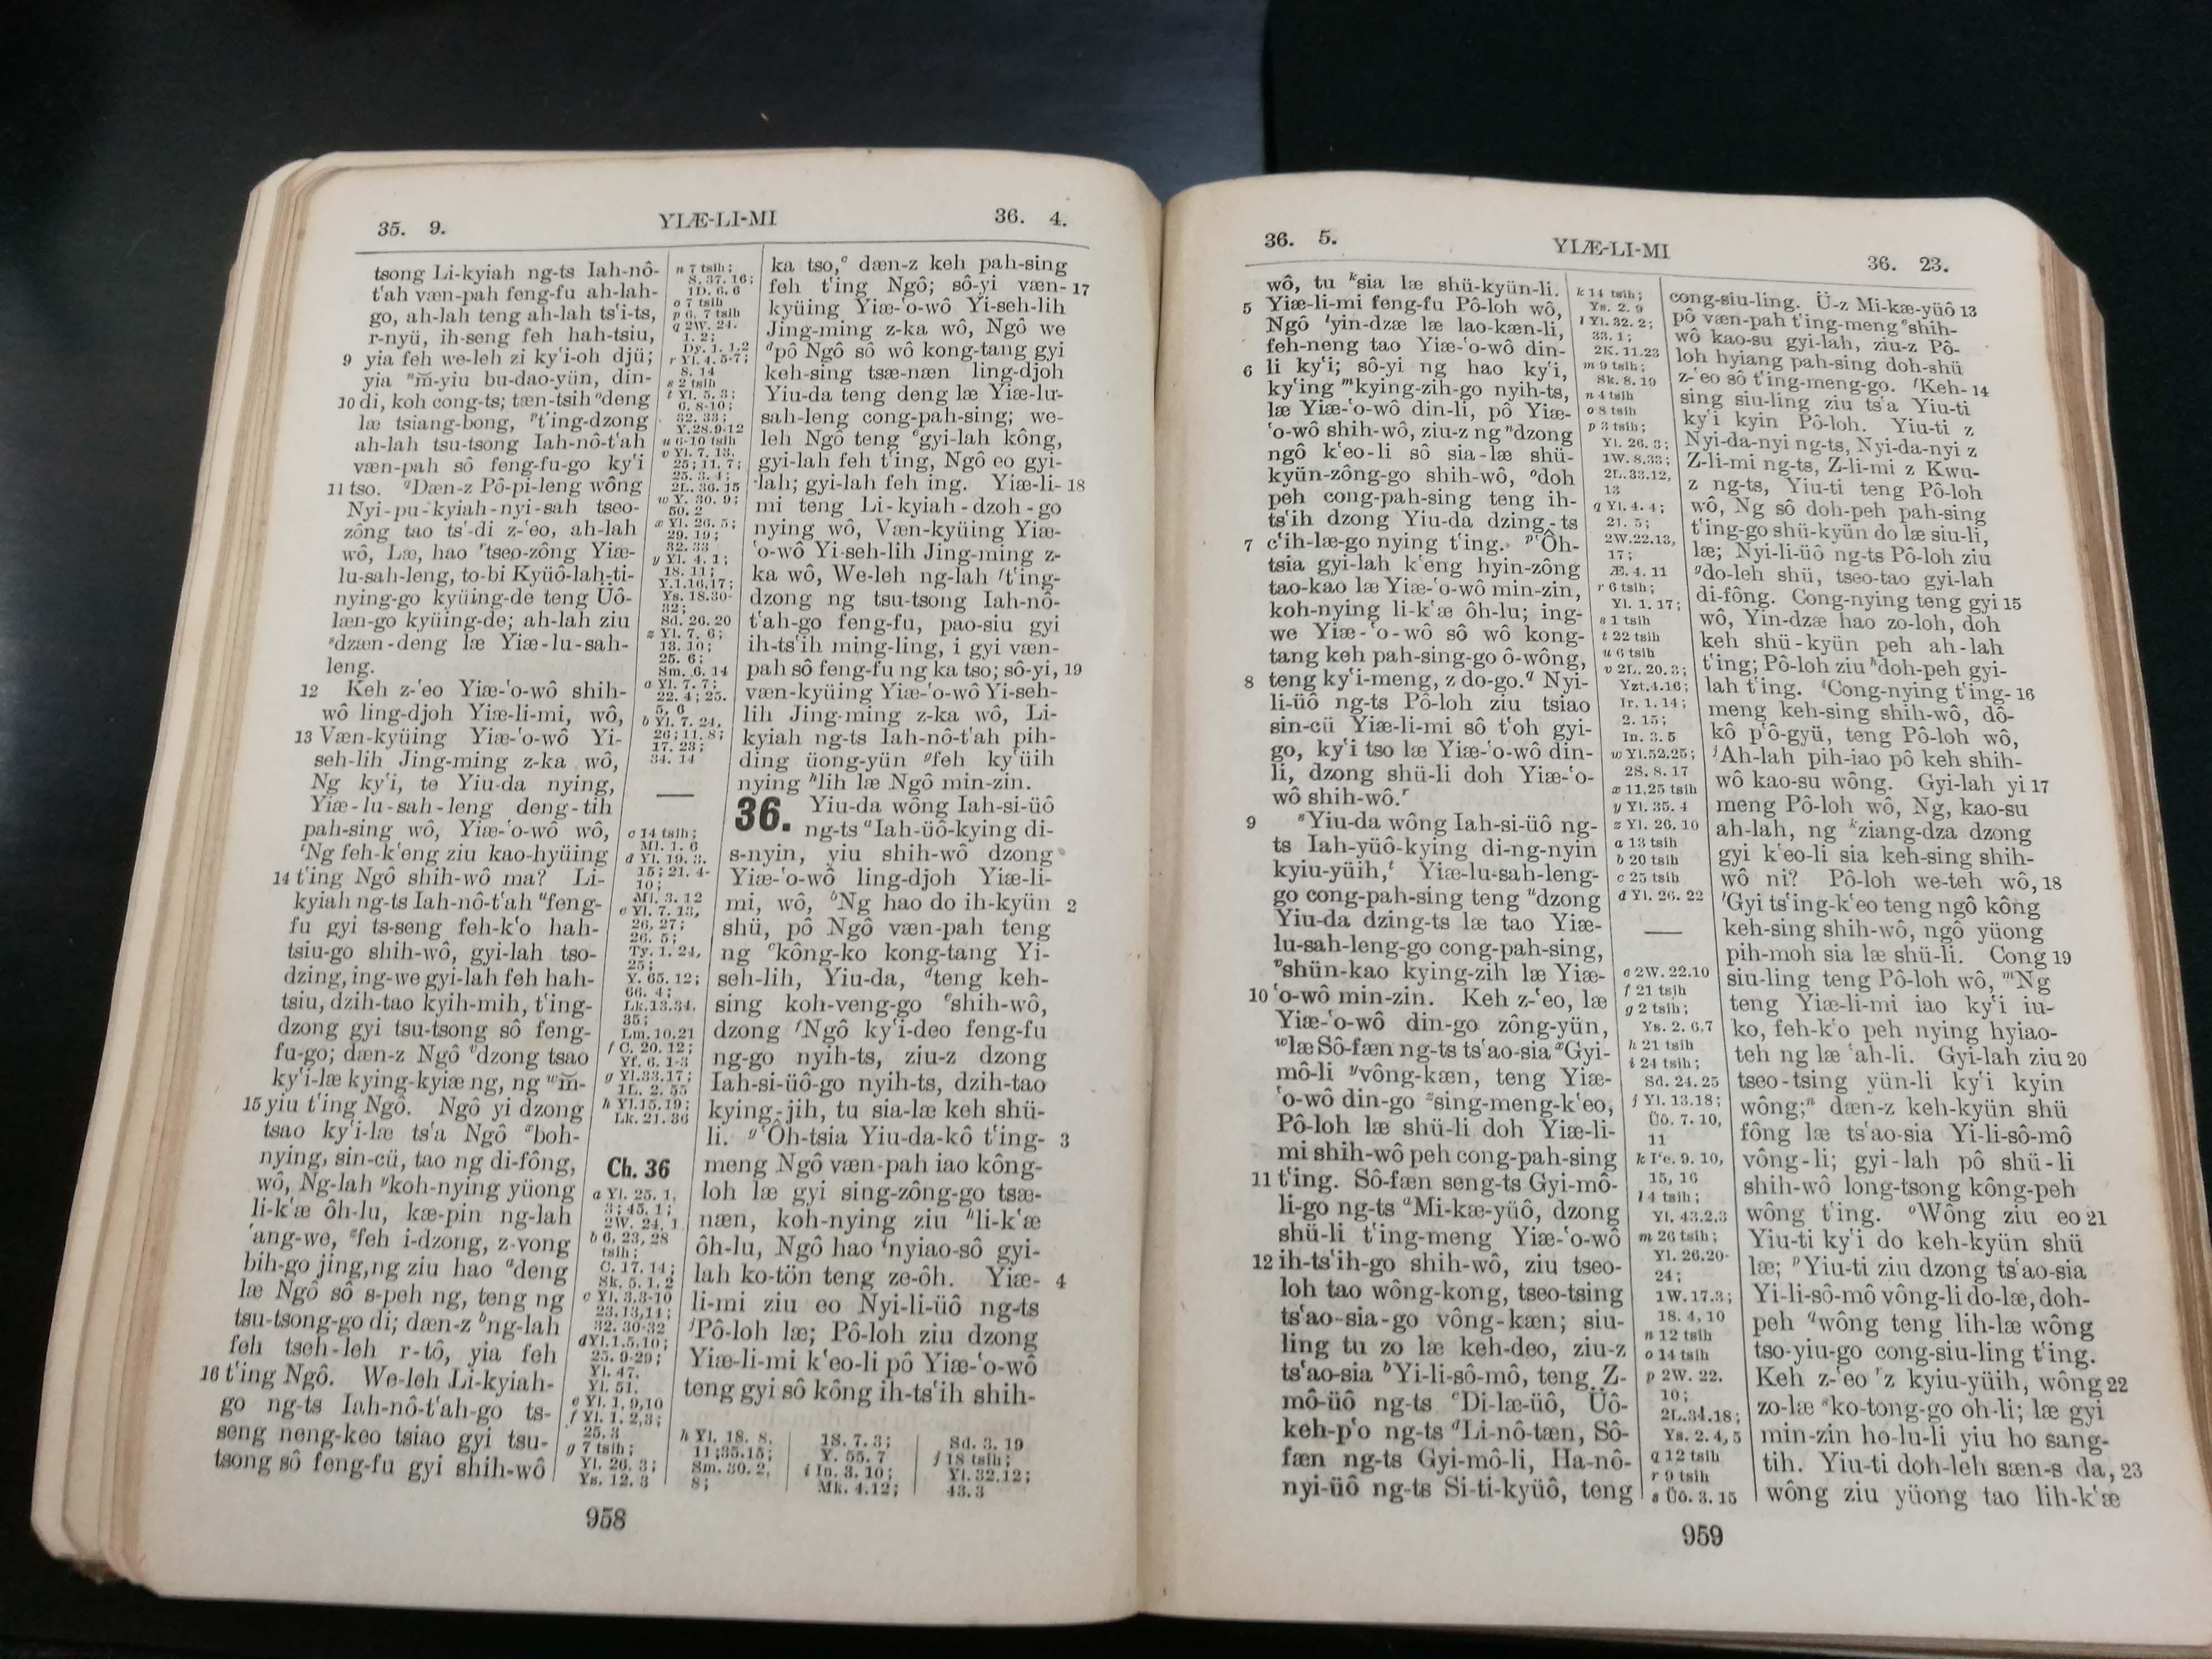 35. 9. YIÆ-LI-MI 36. 4.
tsong Li-kyiah ng-ts Iah-nô-
t‘ah væn-pah feng-fu ah-lah-
go, ah-lah teng ah-lah ts‘i-ts,
r-nyü, ih-seng feh hah-tsiu,
9 yia feh we-leh zi ky‘i-oh djü;
yia ⁿm̆-yiu bu-dao-yün, din-
10 di, koh cong-ts; tæn-tsih ᵒdeng
læ tsiang-bong, ᵖt‘ing-dzong
ah-lah tsu-tsong Iah-nô-t‘ah
væn-pah sô feng-fu-go ky‘i
11 tso. ᑫDæn-z Pô-pi-leng wông
Nyi-pu-kyiah-nyi-sah tseo-
zông tao ts‘-di z-‘eo, ah-lah
wô, Læ, hao ʳtseo-zông Yiæ-
lu-sah-leng, to-bi Kyüô-lah-ti-
nying-go kyüing-de teng Üô-
læn-go kyüing-de; ah-lah ziu
ˢdzæn-deng læ Yiæ-lu-sah-
leng.
12 Keh z-‘eo Yiæ-‘o-wô shih-
wô ling-djoh Yiæ-li-mi, wô,
13 Væn-kyüing Yiæ-‘o-wô Yi-
seh-lih Jing-ming z-ka wô,
Ng ky‘i, te Yiu-da nying,
Yiæ-lu-sah-leng deng-tih
pah-sing wô, Yiæ-‘o-wô wô,
ᵗNg feh-k‘eng ziu kao-hyüing
14 t‘ing Ngô shih-wô ma? Li-
kyiah ng-ts Iah-nô-t‘ah ᵘfeng-
fu gyi ts-seng feh-k‘o hah-
tsiu-go shih-wô, gyi-lah tso-
dzing, ing-we gyi-lah feh hah-
tsiu, dzih-tao kyih-mih, t‘ing-
dzong gyi tsu-tsong sô feng-
fu-go; dæn-z Ngô ᵛdzong tsao
ky‘i-læ kying-kyiæ ng, ng ʷm̆-
15 yiu t‘ing Ngô. Ngô yi dzong
tsao ky‘i-læ ts‘a Ngô ˣboh-
nying, sin-cü, tao ng di-fông,
wô, Ng-lah ʸkoh-nying yüong
li-k‘æ ôh-lu, kæ-pin ng-lah
‘ang-we, ᶻfeh i-dzong, z-vong
bih-go jing, ng ziu hao ᵃdeng
læ Ngô sô s-peh ng, teng ng
tsu-tsong-go di; dæn-z ᵇng-lah
feh tseh-leh r-tô, yia feh
16 t‘ing Ngô. We-leh Li-kyiah-
go ng-ts Iah-nô-t‘ah-go ts-
seng neng-keo tsiao gyi tsu-
tsong sô feng-fu gyi shih-wô
n 7 tsih;
S. 37. 16;
1D. 6. 6
o 7 tsih
p 6, 7 tsih
q 2W. 24.
1. 2;
Dy. 1. 1,2
r Yl. 4. 5-7;
8. 14
s 2 tsih
t Yl. 5. 3;
6. 8-10;
32. 33;
Y.28.9-12
u 6-10 tsih
v Yl. 7. 13,
25; 11. 7;
25. 3, 4;
2L. 36. 15
w Y. 30. 9;
50. 2
x Yl. 26. 5;
29. 19;
32. 33
y Yl. 4. 1;
18. 11;
Y.1.16,17;
Ys. 18.30-
32;
Sd. 26. 20
z Yl. 7. 6;
13. 10;
25. 6;
Sm. 6. 14
a Yl. 7. 7;
22. 4; 25.
5, 6
b Yl. 7. 24,
26; 11. 8;
17. 23;
34. 14
c 14 tsih;
Ml. 1. 6
d Yl. 19. 3.
15; 21. 4-
10;
Ml. 3. 12
e Yl. 7. 13,
26, 27;
26. 5;
Ty. 1. 24,
25;
Y. 65. 12;
66. 4;
Lk.13.34,
35;
Lm. 10.21
f C. 20. 12;
Yf. 6. 1-3
g Yl.33.17;
1L. 2. 55
h Yl.15.19;
Lk. 21. 36
Ch. 36
a Yl. 25. 1,
3; 45. 1;
2W. 24. 1
b 6, 23, 28
tsih;
C. 17. 14;
Sk. 5. 1, 2
c Yl. 3.3-10
23.13,14;
32. 30-32
d Yl.1.5,10;
25. 9-29;
Yl. 47.
Yl. 51.
e Yl. 1. 9,10
f Yl. 1. 2,3;
25. 3
g 7 tsih;
Yl. 26. 3;
Ys. 12. 3
ka tso,ᶜ dæn-z keh pah-sing
feh t‘ing Ngô; sô-yi væn- 17
kyüing Yiæ-‘o-wô Yi-seh-lih
Jing-ming z-ka wô, Ngô we
ᵈpô Ngô sô wô kong-tang gyi
keh-sing tsæ-næn ling-djoh
Yiu-da teng deng læ Yiæ-lu-
sah-leng cong-pah-sing; we-
leh Ngô teng ᵉgyi-lah kông,
gyi-lah feh t‘ing, Ngô eo gyi-
lah; gyi-lah feh ing. Yiæ-li- 18
mi teng Li-kyiah-dzoh-go
nying wô, Væn-kyüing Yiæ-
‘o-wô Yi-seh-lih Jing-ming z-
ka wô, We-leh ng-lah ᶠt‘ing-
dzong ng tsu-tsong Iah-nô-
t‘ah-go feng-fu, pao-siu gyi
ih-ts‘ih ming-ling, i gyi væn-
pah sô feng-fu ng ka tso; sô-yi, 19
væn-kyüing Yiæ-‘o-wô Yi-seh-
lih Jing-ming z-ka wô, Li-
kyiah ng-ts Iah-nô-t‘ah pih-
ding üong-yün ᵍfeh ky‘üih
nying ʰlih læ Ngô min-zin.
36. Yiu-da wông Iah-si-üô
ng-ts ᵃIah-üô-kying di-
s-nyin, yiu shih-wô dzong
Yiæ-‘o-wô ling-djoh Yiæ-li-
mi, wô, ᵇNg hao do ih-kyün 2
shü, pô Ngô væn-pah teng
ng ᶜkông-ko kong-tang Yi-
seh-lih, Yiu-da, ᵈteng keh-
sing koh-veng-go ᵉshih-wô,
dzong ᶠNgô ky‘i-deo feng-fu
ng-go nyih-ts, ziu-z dzong
Iah-si-üô-go nyih-ts, dzih-tao
kying-jih, tu sia-læ keh shü-
li. ᵍ‘Ôh-tsia Yiu-da-kô t‘ing- 3
meng Ngô væn-pah iao kông-
loh læ gyi sing-zông-go tsæ-
næn, koh-nying ziu ʰli-k‘æ
ôh-lu, Ngô hao ⁱnyiao-sô gyi-
lah ko-tön teng ze-ôh. Yiæ- 4
li-mi ziu eo Nyi-li-üô ng-ts
ʲPô-loh læ; Pô-loh ziu dzong
Yiæ-li-mi k‘eo-li pô Yiæ-‘o-wô
teng gyi sô kông ih-ts‘ih shih-
h Yl. 18. 8,
11; 35.15;
Sm. 30. 2,
8;
18. 7. 3;
Y. 55. 7
i In. 3. 10;
Mk. 4.12;
Sd. 3. 19
j 18 tsih;
Yl. 32.12;
43. 3
958
36. 5. YIÆ-LI-MI 36. 23.
wô, tu ᵏsia læ shü-kyün-li.
5 Yiæ-li-mi feng-fu Pô-loh wô,
Ngô ˡyin-dzæ læ lao-kæn-li,
feh-neng tao Yiæ-‘o-wô din-
6 li ky‘i; sô-yi ng hao ky‘i,
ky‘ing ᵐkying-zih-go nyih-ts,
læ Yiæ-‘o-wô din-li, pô Yiæ-
‘o-wô shih-wô, ziu-z ng ⁿdzong
ngô k‘eo-li sô sia-læ shü-
kyün-zông-go shih-wô, ᵒdoh
peh cong-pah-sing teng ih-
ts‘ih dzong Yiu-da dzing-ts
7 c‘ih-læ-go nying t‘ing. ᵖ‘Ôh-
tsia gyi-lah k‘eng hyin-zông
tao-kao læ Yiæ-‘o-wô min-zin,
koh-nying li-k‘æ ôh-lu; ing-
we Yiæ-‘o-wô sô wô kong-
tang keh pah-sing-go ô-wông,
8 teng ky‘i-meng, z do-go.ᑫ Nyi-
li-üô ng-ts Pô-loh ziu tsiao
sin-cü Yiæ-li-mi sô t‘oh gyi-
go, ky‘i tso læ Yiæ-‘o-wô din-
li, dzong shü-li doh Yiæ-‘o-
wô shih-wô.ʳ
9 ˢYiu-da wông Iah-si-üô ng-
ts Iah-yüô-kying di-ng-nyin
kyiu-yüih,ᵗ Yiæ-lu-sah-leng-
go cong-pah-sing teng ᵘdzong
Yiu-da dzing-ts læ tao Yiæ-
lu-sah-leng-go cong-pah-sing,
ᵛshün-kao kying-zih læ Yiæ-
10 ‘o-wô min-zin. Keh z-‘eo, læ
Yiæ-‘o-wô din-go zông-yün,
ʷlæ Sô-fæn ng-ts ts‘ao-sia ˣGyi-
mô-li ʸvông-kæn, teng Yiæ-
‘o-wô din-go ᶻsing-meng-k‘eo,
Pô-loh læ shü-li doh Yiæ-li-
mi shih-wô peh cong-pah-sing
11 t‘ing. Sô-fæn seng-ts Gyi-mô-
li-go ng-ts ᵃMi-kæ-yüô, dzong
shü-li t‘ing-meng Yiæ-‘o-wô
12 ih-ts‘ih-go shih-wô, ziu tseo-
loh tao wông-kong, tseo-tsing
ts‘ao-sia-go vông-kæn; siu-
ling tu zo læ keh-deo, ziu-z
ts‘ao-sia ᵇYi-li-sô-mô, teng Z-
mô-üô ng-ts ᶜDi-læ-üô, Üô-
keh-p‘o ng-ts ᵈLi-nô-tæn, Sô-
fæn ng-ts Gyi-mô-li, Ha-nô-
nyi-üô ng-ts Si-ti-kyüô, teng
k 14 tsih;
Ys. 2. 9
l Yl. 32. 2;
33. 1;
2K. 11.23
m 9 tsih;
Sk. 8. 19
n 4 tsih
o 8 tsih
p 3 tsih;
Yl. 26. 3;
1W. 8.33;
2L.33.12,
13
q Yl. 4. 4;
21. 5;
2W.22.13,
17;
Æ. 4. 11
r 6 tsih;
Yl. 1. 17;
s 1 tsih
t 22 tsih
u 6 tsih
v 2L. 20. 3;
Yzt.4.16;
Ir. 1. 14;
2. 15;
In. 3. 5
w Yl.52.25;
2S. 8. 17
x 11,25 tsih
y Yl. 35. 4
z Yl. 26. 10
a 13 tsih
b 20 tsih
c 25 tsih
d Yl. 26. 22
e 2W. 22.10
f 21 tsih
g 2 tsih;
Ys. 2. 6,7
h 21 tsih
i 24 tsih;
Sd. 24. 25
j Yl. 13.18;
Üô. 7. 10,
11
k I‘e. 9. 10,
15, 16
l 4 tsih;
Yl. 43.2.3
m 26 tsih;
Yl. 26.20-
24;
1W. 17.3;
18. 4, 10
n 12 tsih
o 14 tsih
p 2W. 22.
10;
2L.34.18;
Ys. 2. 4, 5
q 12 tsih
r 9 tsih
s Üô. 3. 15
cong-siu-ling. Ü-z Mi-kæ-yüô 13
pô væn-pah t‘ing-meng ᵉshih-
wô kao-su gyi-lah, ziu-z Pô-
loh hyiang pah-sing doh-shü
z-‘eo sô t‘ing-meng-go. ᶠKeh- 14
sing siu-ling ziu ts‘a Yiu-ti
ky‘i kyin Pô-loh. Yiu-ti z
Nyi-da-nyi ng-ts, Nyi-da-nyi z
Z-li-mi ng-ts, Z-li-mi z Kwu-
z ng-ts, Yiu-ti teng Pô-loh
wô, Ng sô doh-peh pah-sing
t‘ing-go shü-kyün do læ siu-li,
læ; Nyi-li-üô ng-ts Pô-loh ziu
ᵍdo-leh shü, tseo-tao gyi-lah
di-fông. Cong-nying teng gyi 15
wô, Yin-dzæ hao zo-loh, doh
keh shü-kyün peh ah-lah
t‘ing; Pô-loh ziu ʰdoh-peh gyi-
lah t‘ing. ⁱCong-nying t‘ing- 16
meng keh-sing shih-wô, dô-
kô p‘ô-gyü, teng Pô-loh wô,
ʲAh-lah pih-iao pô keh shih-
wô kao-su wông. Gyi-lah yi 17
meng Pô-loh wô, Ng, kao-su
ah-lah, ng ᵏziang-dza dzong
gyi k‘eo-li sia keh-sing shih-
wô ni? Pô-loh we-teh wô, 18
ˡGyi ts‘ing-k‘eo teng ngô kông
keh-sing shih-wô, ngô yüong
pih-moh sia læ shü-li. Cong 19
siu-ling teng Pô-loh wô, ᵐNg
teng Yiæ-li-mi iao ky‘i iu-
ko, feh-k‘o peh nying hyiao-
teh ng læ ‘ah-li. Gyi-lah ziu 20
tseo-tsing yün-li ky‘i kyin
wông;ⁿ dæn-z keh-kyün shü
fông læ ts‘ao-sia Yi-li-sô-mô
vông-li; gyi-lah pô shü-li
shih-wô long-tsong kông-peh
wông t‘ing. ᵒWông ziu eo 21
Yiu-ti ky‘i do keh-kyün shü
læ; ᵖYiu-ti ziu dzong ts‘ao-sia
Yi-li-sô-mô vông-li do-læ, doh-
peh ᑫwông teng lih-læ wông
tso-yiu-go cong-siu-ling t‘ing.
Keh z-‘eo ʳz kyiu-yüih, wông 22
zo-læ ˢko-tong-go oh-li; læ gyi
min-zin ho-lu-li yiu ho sang-
tih. Yiu-ti doh-leh sæn-s da, 23
wông ziu yüong tao lih-k‘æ
959